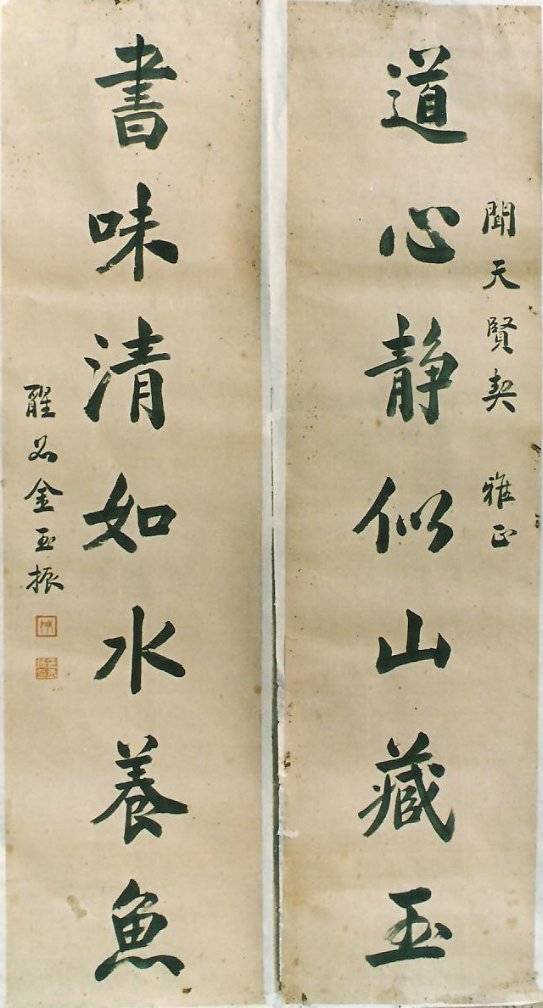 道心静似山藏玉
聞天賢契 雅正
書味清如水養魚
醒吾金玉振